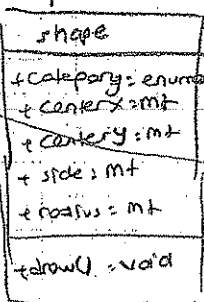 shape
+category: enum
+ centerx: int
+ centery: int
+ side: int
+ radius: int
+draw(): void